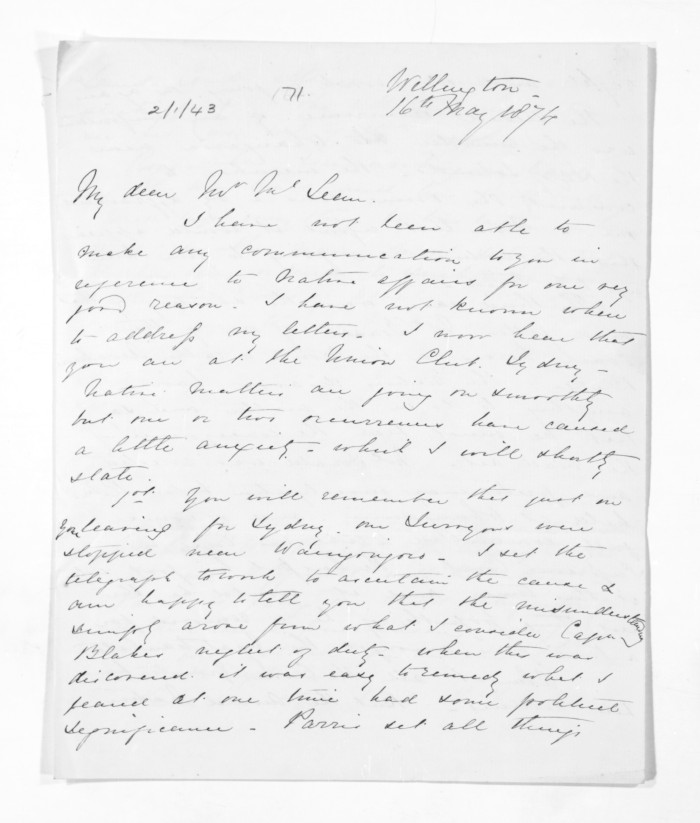 Wellington
16th May 1874
2/1/43
71.
My dear Mr McLean.
I have not been able to
make any communication to you in
reference to Native affairs for one very
good reason. I have not known where
to address my letters. I now hear that
you are at the Union Club. Sydney -
Native matters are going on smoothly
but one or two occurrences have caused
a little anxiety - which I will shortly
state.
1st. You will remember that just on
you leaving for Sydney. our Surveyors were
stopped near Waingongoro - I set the
telegraph to work to ascertain the cause &
am happy to tell you that the misunderstanding
simply arose from what I consider Captn
Blakes neglect of duty - when this was
discovered it was easy to remedy what I
feared at one time had some political
significance - Parris set all things